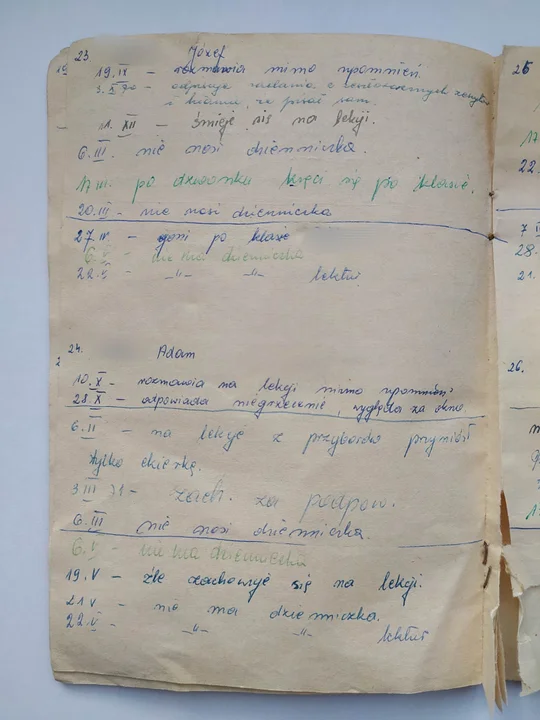 23 Józef
19. IX – rozmawia mimo upomnień.
3. X 70 – odpisuje zadania z zeszytów
i kłamie, że pisał sam.
11. XII – śmieje się na lekcji.
6. III. nie nosi dzienniczka.
17 III. po dzwonku kręci się po klasie.
20. III – nie nosi dzienniczka
27. IV. – goni po klasie
6. V – nie ma dzienniczka
22. V – –"– –"– lektur
24. Adam
10. X – rozmawia na lekcji mimo upomnień
28. X – odpowiada niegrzecznie, wygląda za okno
6. II – na lekcję z przyborów przyniósł
tylko ekierkę.
3 III 71 – zach. za podpow.
6. III nie nosi dzienniczka.
6. V – nie ma dzienniczka
19. V – źle zachowuje się na lekcji.
21 V – nie ma dzienniczka.
22. V – –"– –"– lektur
25
22.
7
28.
21.
26.